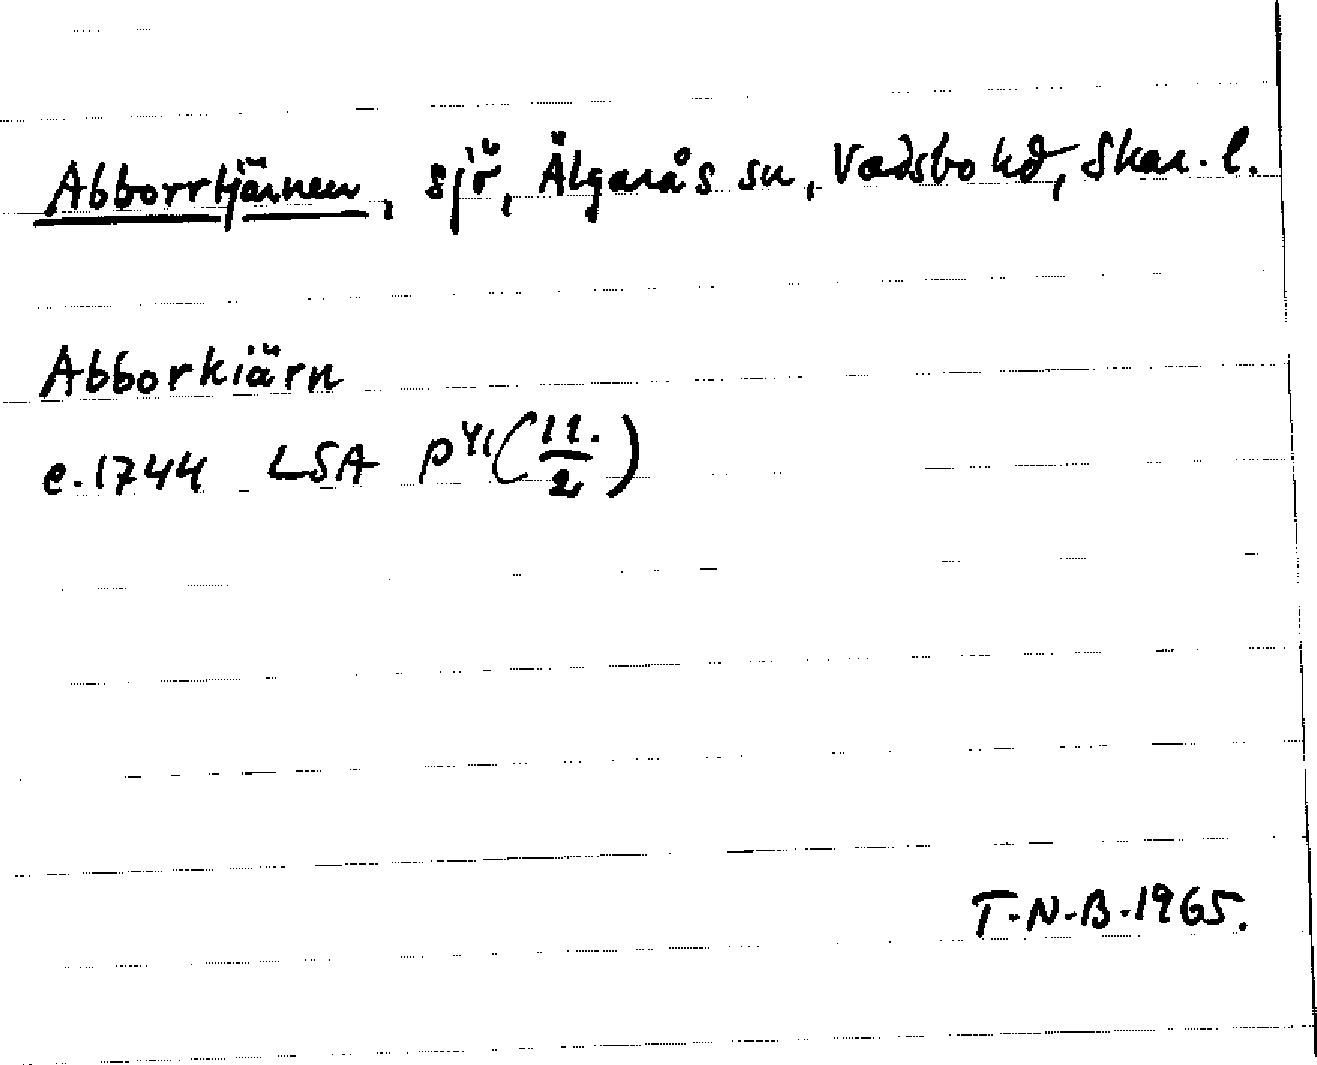 Abborrtjärnen, sjö, Älgarås sn, Vadsbo hd, Skar. l.
Abborkiärn
c. 1744 LSA P 41 (11./2)
T.N.B. 1965.